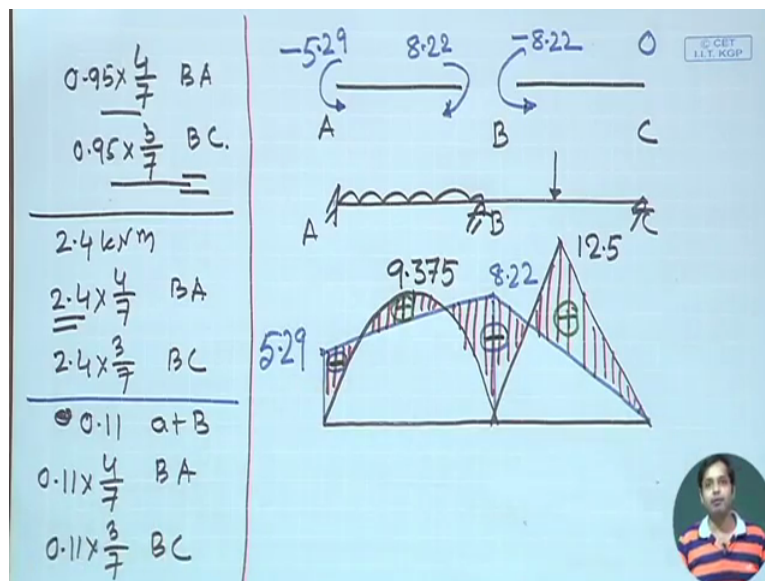 0.95×4/7 BA
0.95×3/7 BC.
2.4 kNm
2.4×4/7 BA
2.4×3/7 BC
0.11 at B
0.11×4/7 BA
0.11×3/7 BC
-5.29 8.22 -8.22 0
© CET
I.I.T. KGP
A B C
A B C
9.375 8.22 12.5
5.29
- + - +